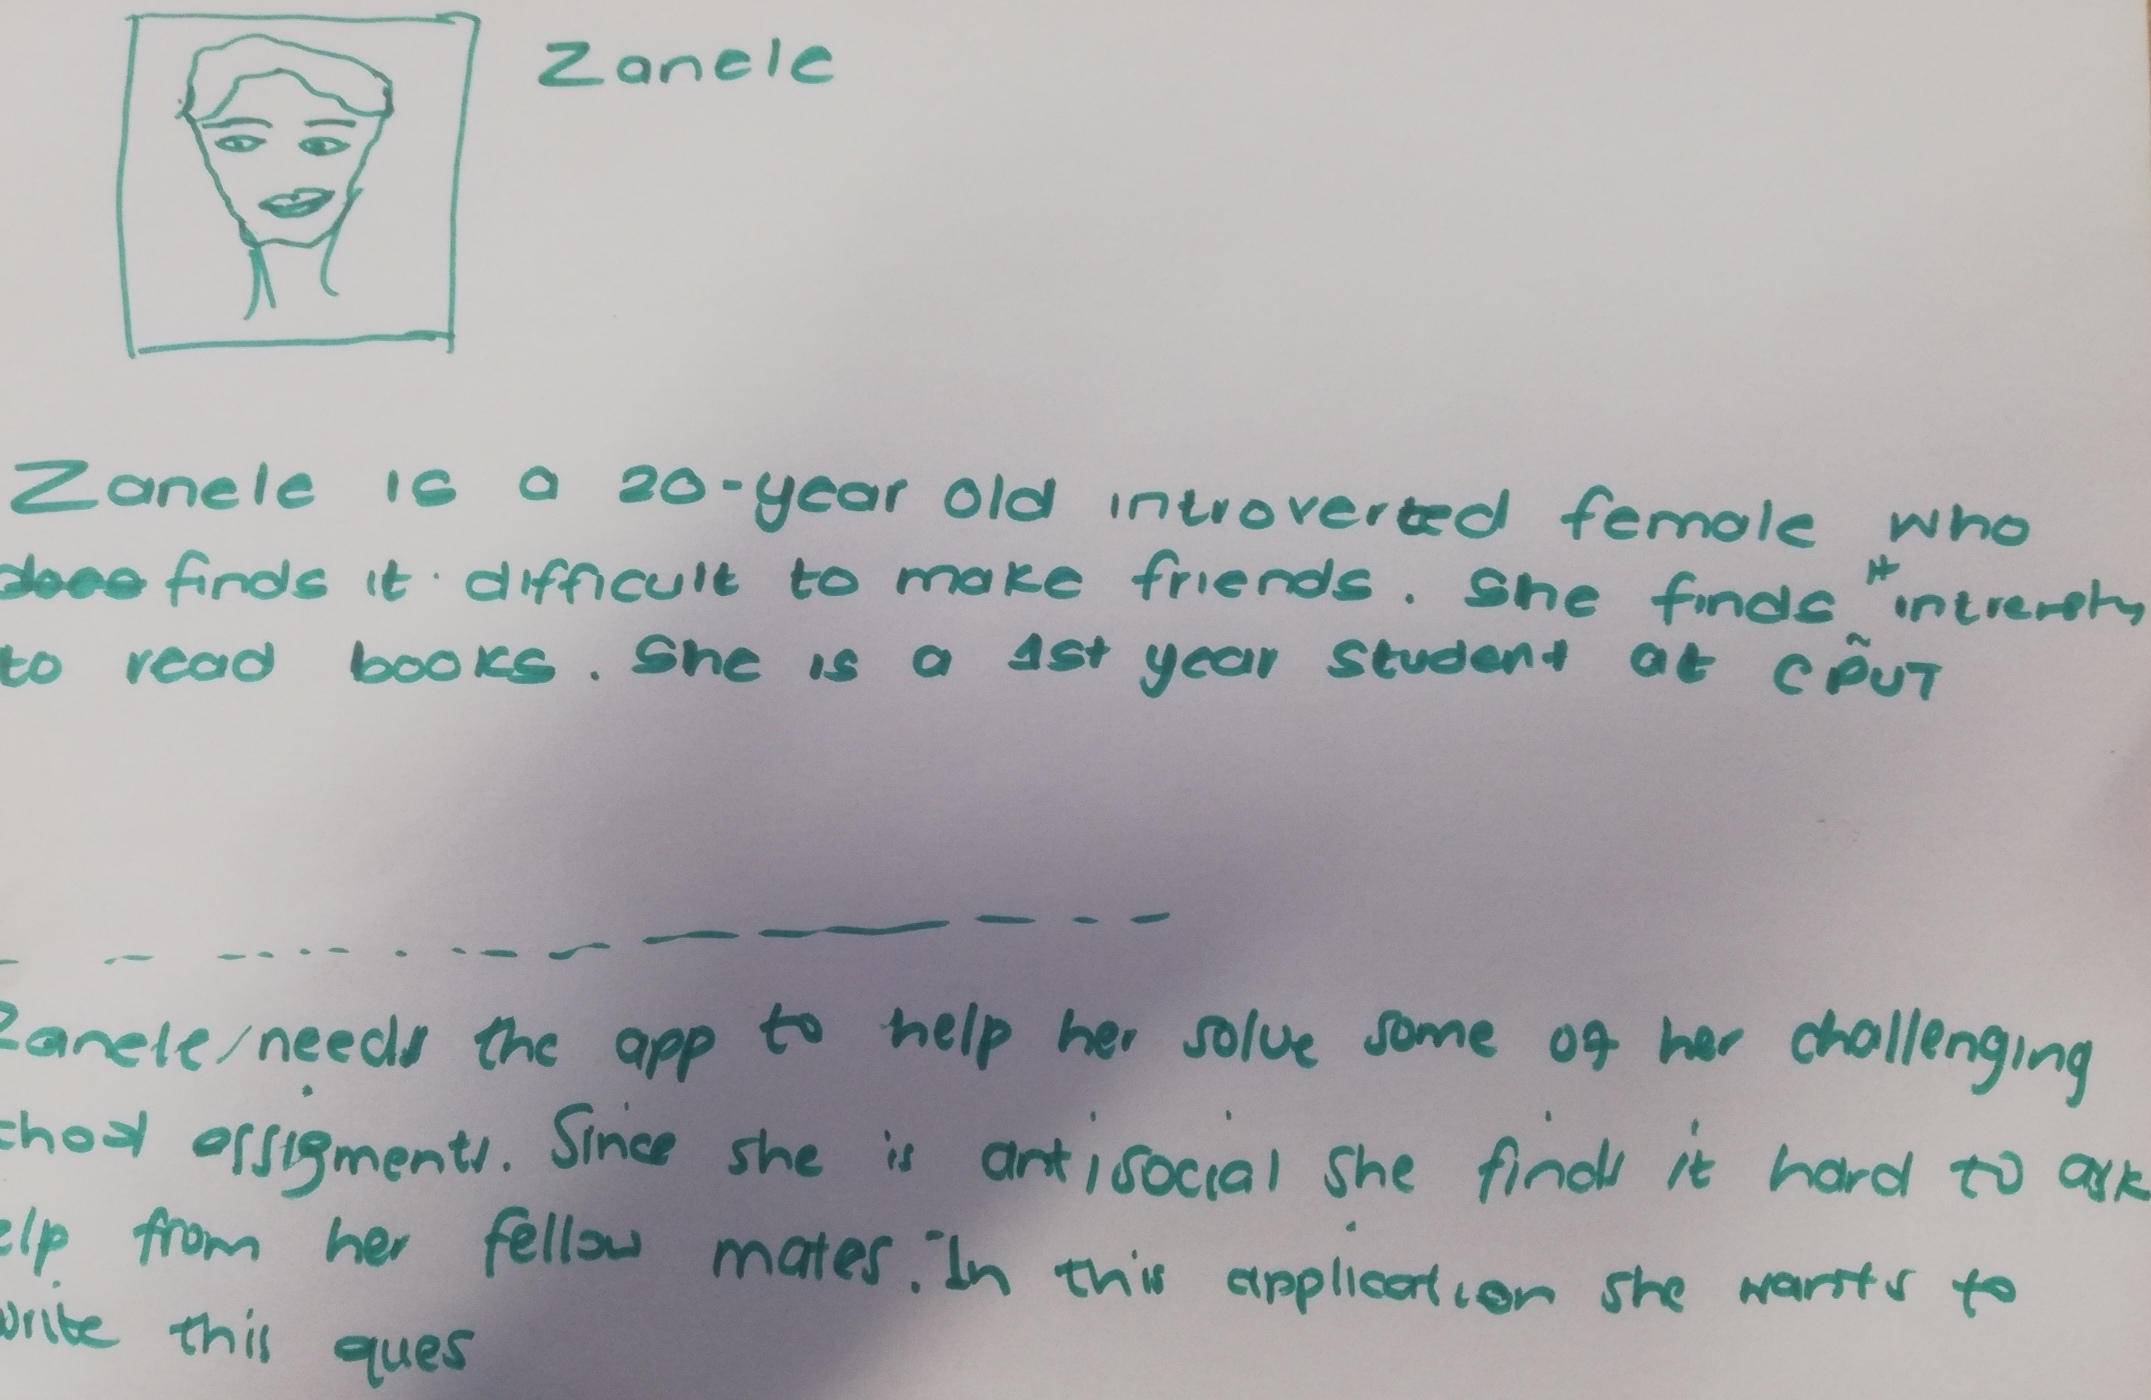 Zanele
Zanele is a 20-year old introverted female who
finds it difficult to make friends. She finds it
to read books. She is a 1st year student at CPUT
Zanele needs the app to help her solve some of her challenging
chool assigments. Since she is antisocial she finds it hard to ask
elp from her fellow mates. In this application she wants to
write this ques